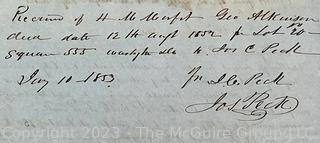 Received of H M Moffit Geo Atkinson
deed date 12th Augt 1852 for Lot 20
Square 555 to Jos C Peck
Jany 10 - 1853 for J C Peck
Jos Peck
Copyright 2023 - The McGuire Group LLC